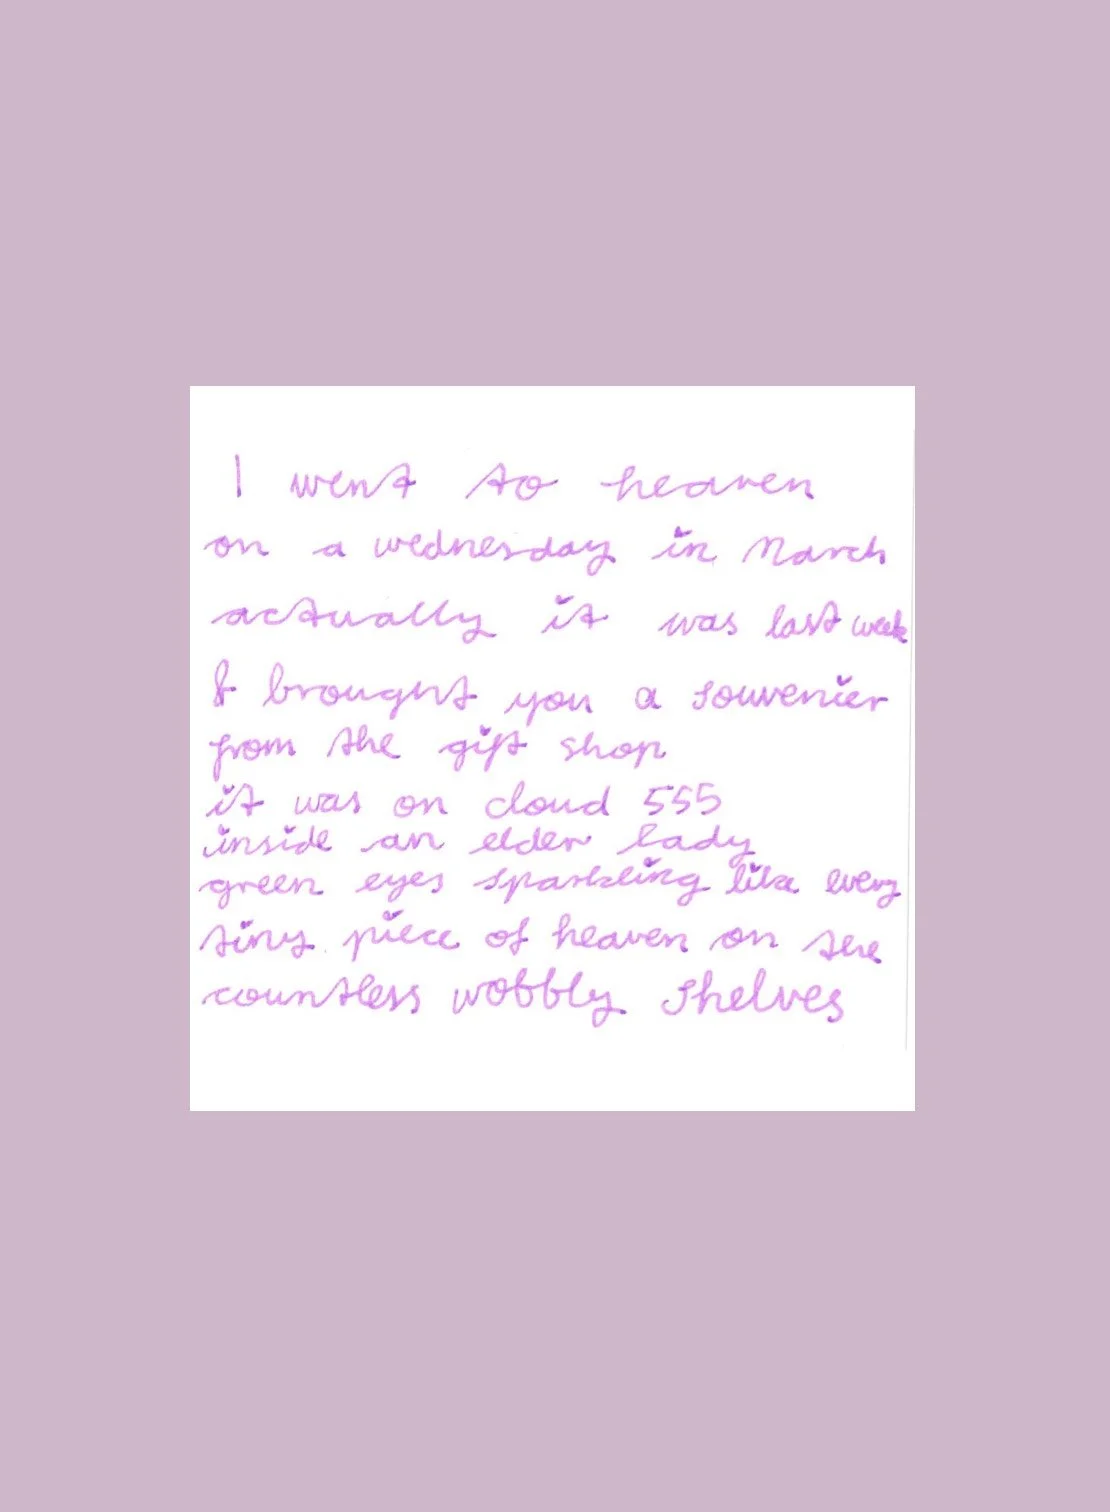 I went to heaven
on a wednesday in March
actually it was last week
I brought you a souvenier
from the gift shop
it was on cloud 555
inside an elder lady
green eyes sparkling like every
tiny piece of heaven on the
countless wobbly shelves